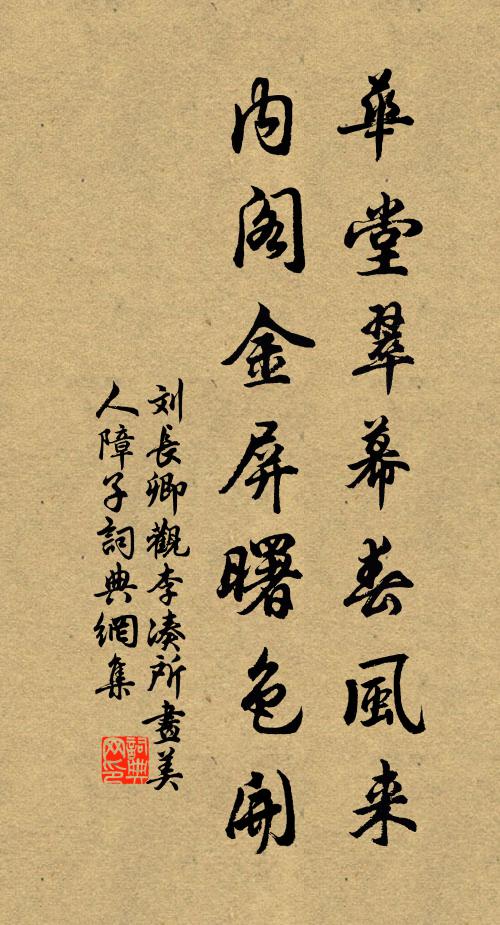 華堂翠幕春風来
内阁金屏曙色開
刘長卿觀李凑所畫美
人障子詞典網集
詞典
网印